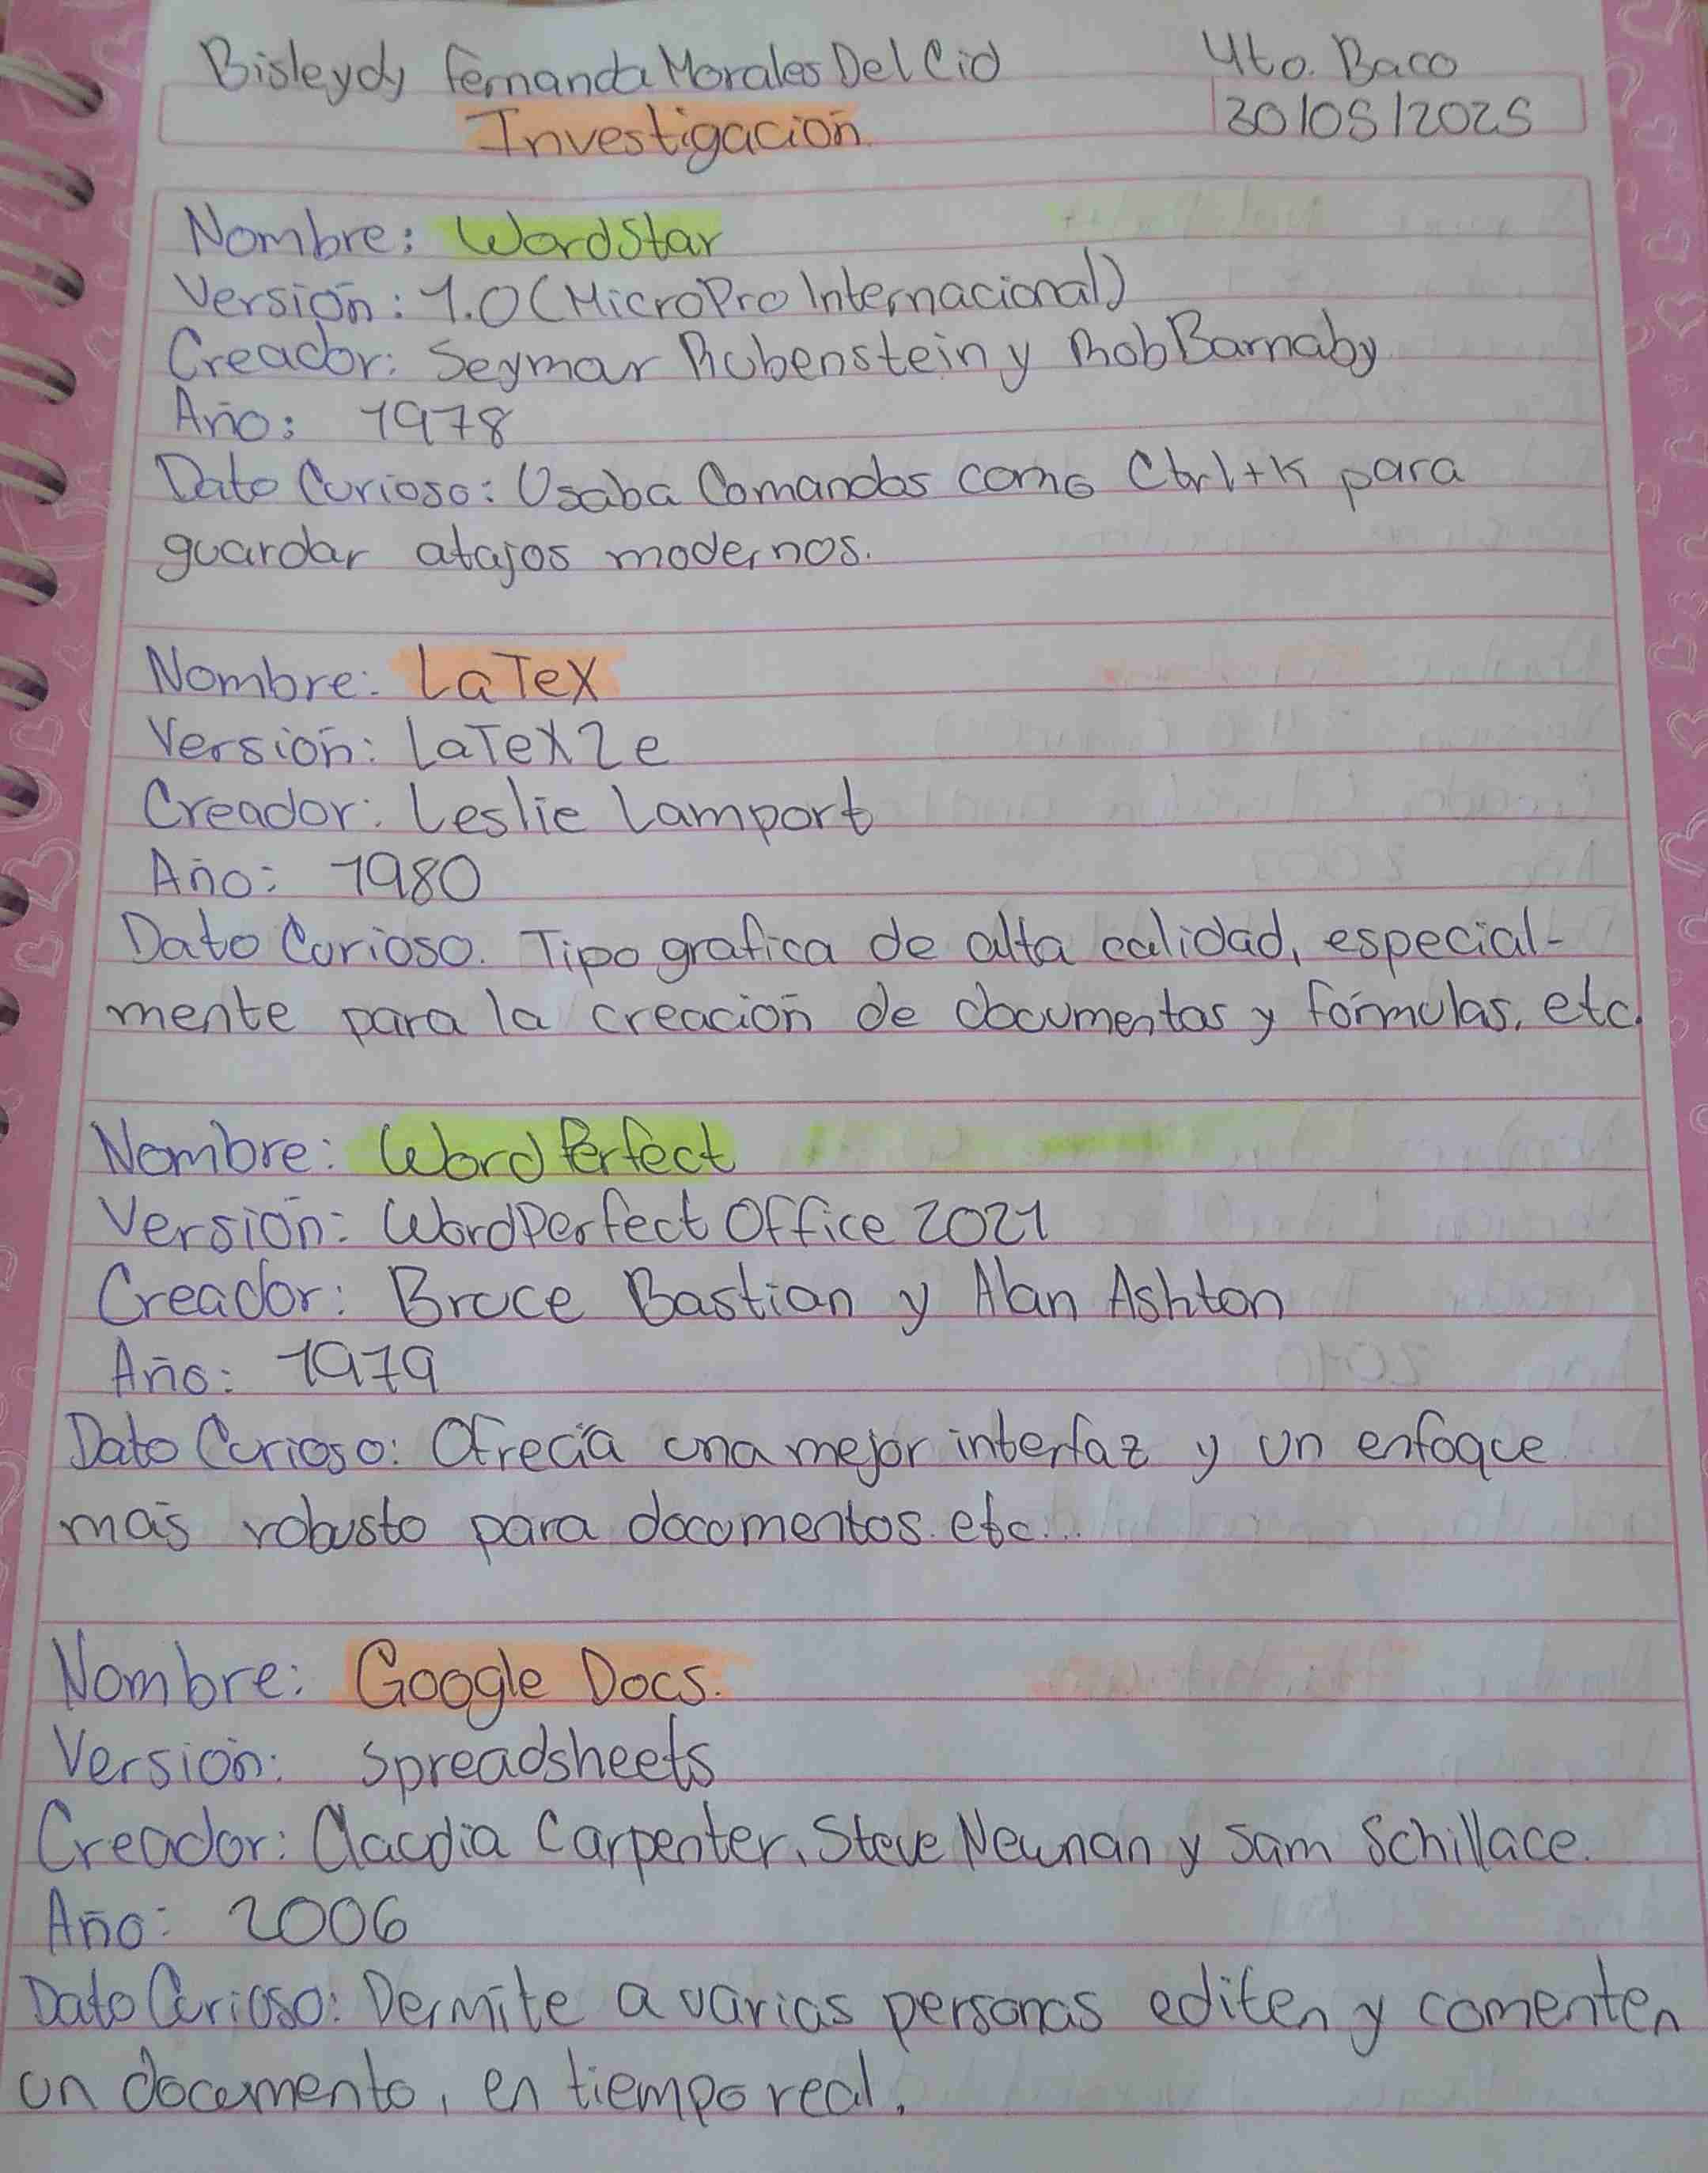 Bisleydy Fernanda Morales Del Cid
4to. Baco
Investigación.
30/05/2025
Nombre: WordStar
Versión: 1.0 (MicroPro Internacional)
Creador: Seymar Rubenstein y Rob Barnaby
Año: 1978
Dato Curioso: Usaba Comandos como Ctrl+K para
guardar atajos modernos.
Nombre: LaTeX
Versión: LaTeX2e
Creador: Leslie Lamport
Año: 1980
Dato Curioso. Tipo grafica de alta calidad, especial-
mente para la creación de documentos y fórmulas, etc.
Nombre: Word Perfect
Versión: WordPerfect Office 2021
Creador: Bruce Bastian y Alan Ashton
Año: 1979
Dato Curioso: Ofrecía una mejor interfaz y un enfoque
más robusto para documentos. etc...
Nombre: Google Docs.
Versión: Spreadsheets
Creador: Claudia Carpenter, Steve Newnan y Sam Schillace.
Año: 2006
Dato Curioso: Permite a varias personas editen y comenten
un documento, en tiempo real.